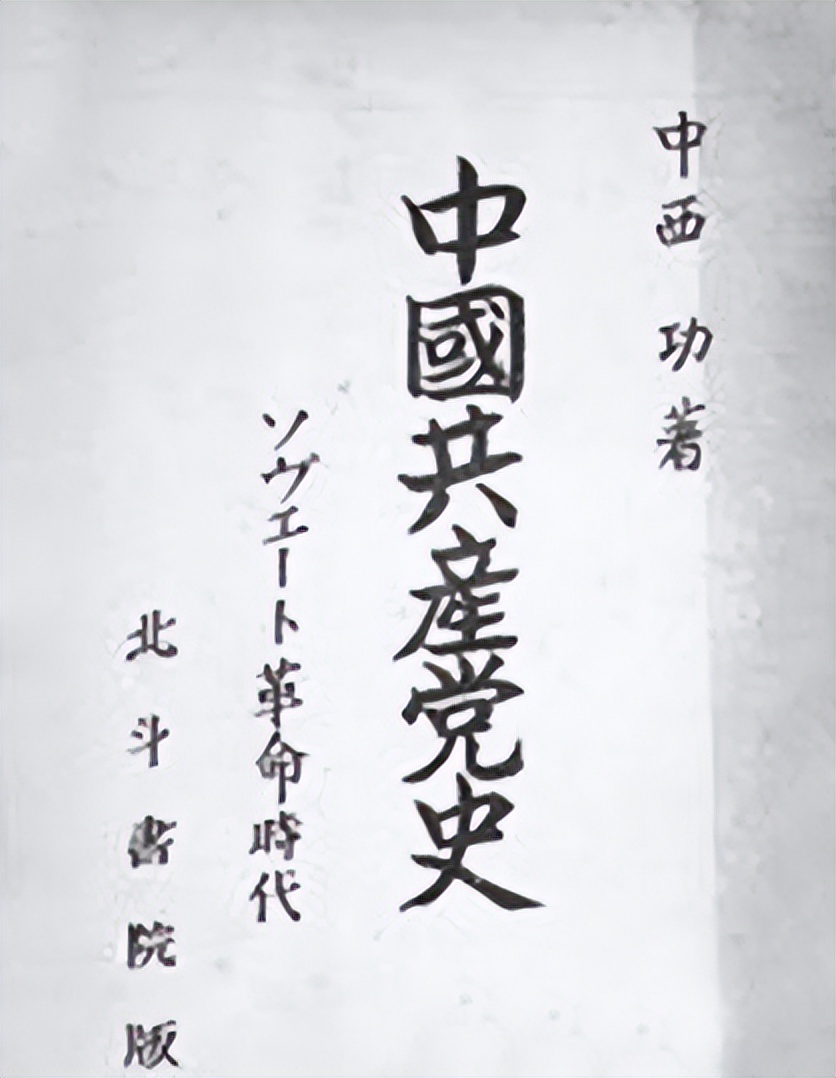 中西功著
中國共產党史
ソヴエート革命時代
北斗書院版